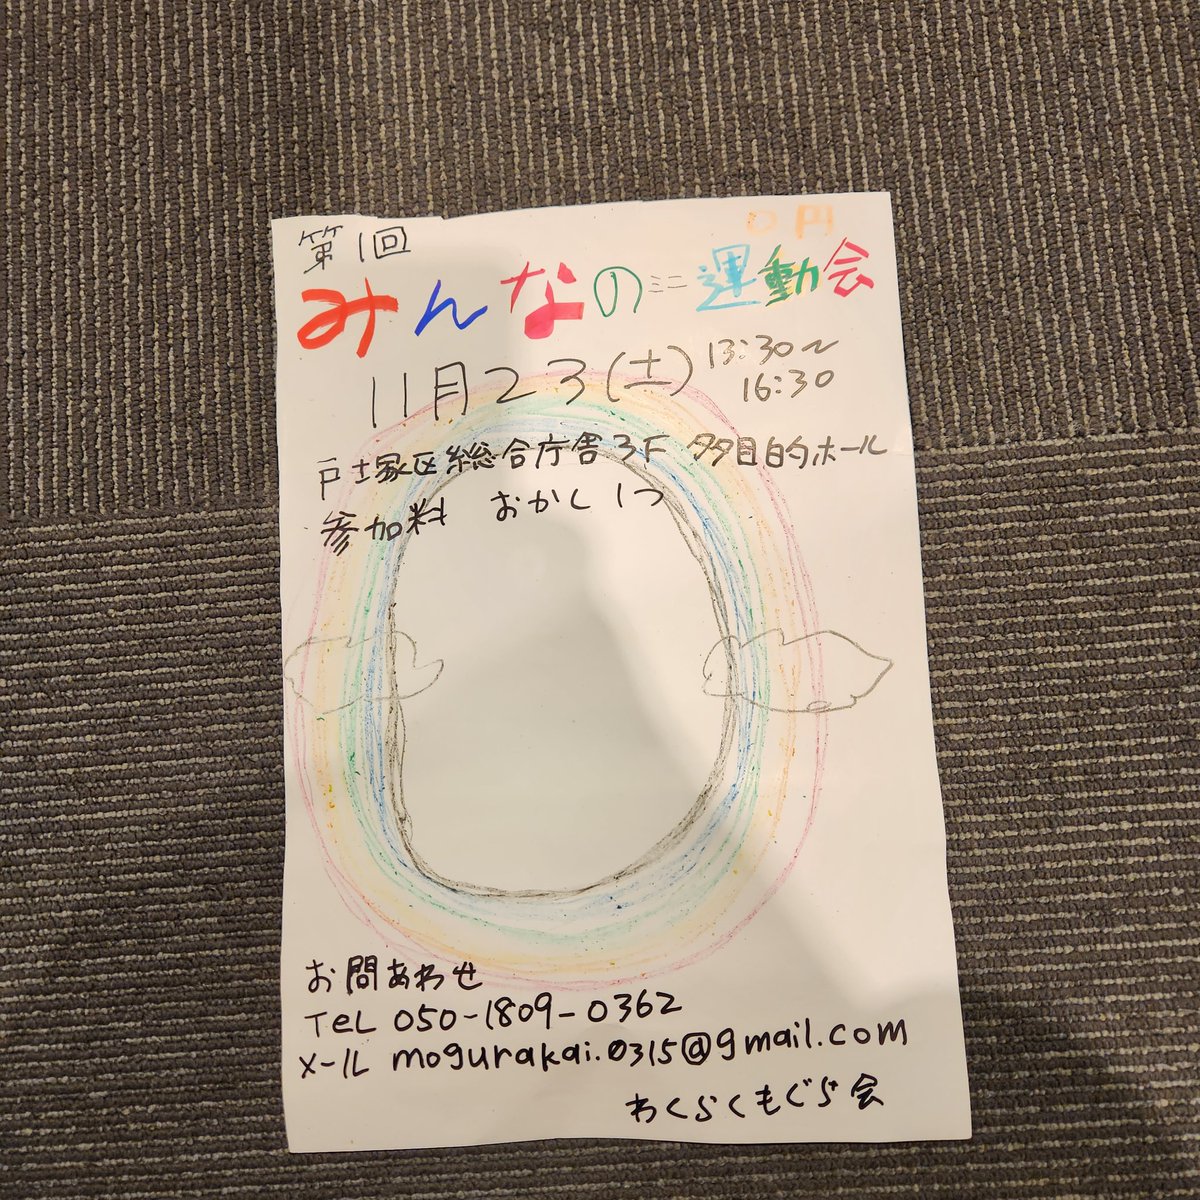 0円
第1回
みんなのミニ運動会
11月23(土) 13:30〜
16:30
戸塚区総合庁舎3F 多目的ホール
参加料 おかし1つ
お問あわせ
TeL 050-1809-0362
メール mogurakai.0315@gmail.com
わくらくもぐら会